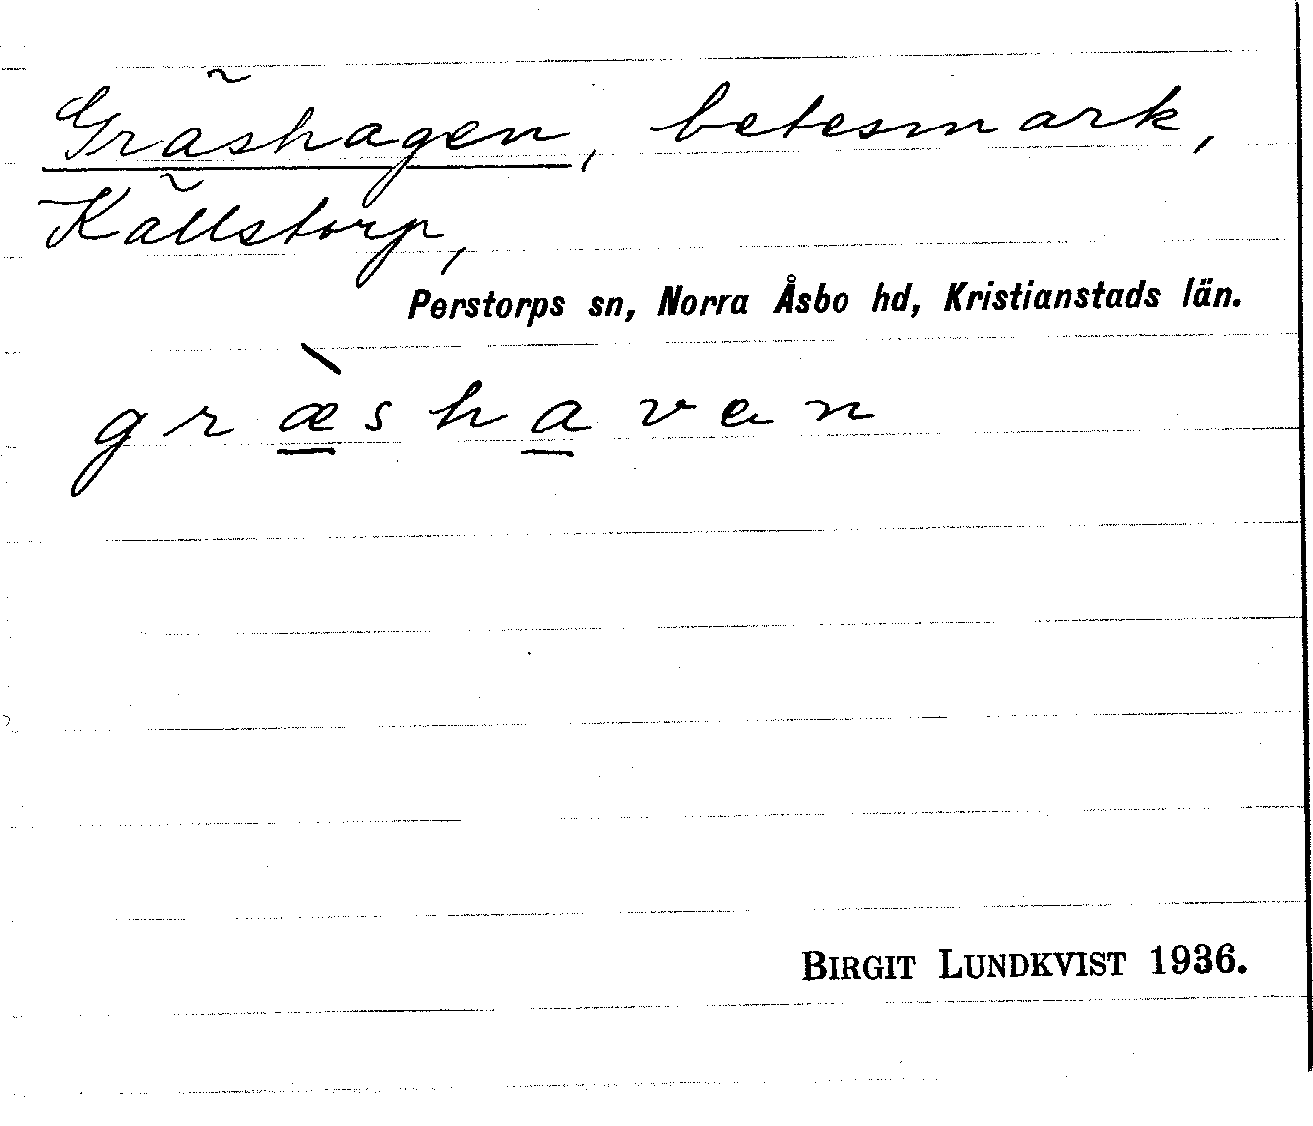 Gräshagen, betesmark,
Källstorp,
Perstorps sn, Norra Åsbo hd, Kristianstads län.
græ̀shaven
BIRGIT LUNDKVIST 1936.